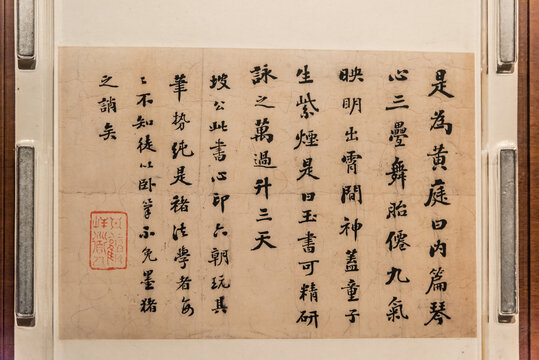 是為黃庭曰內篇琴
心三疊舞胎僊九氣
映明出霄間神蓋童子
生紫煙是曰玉書可精研
詠之萬過升三天
坡公此書心印六朝玩其
筆勢純是褚法學者每
每不知徒以卧筆不免墨猪
之誚矣